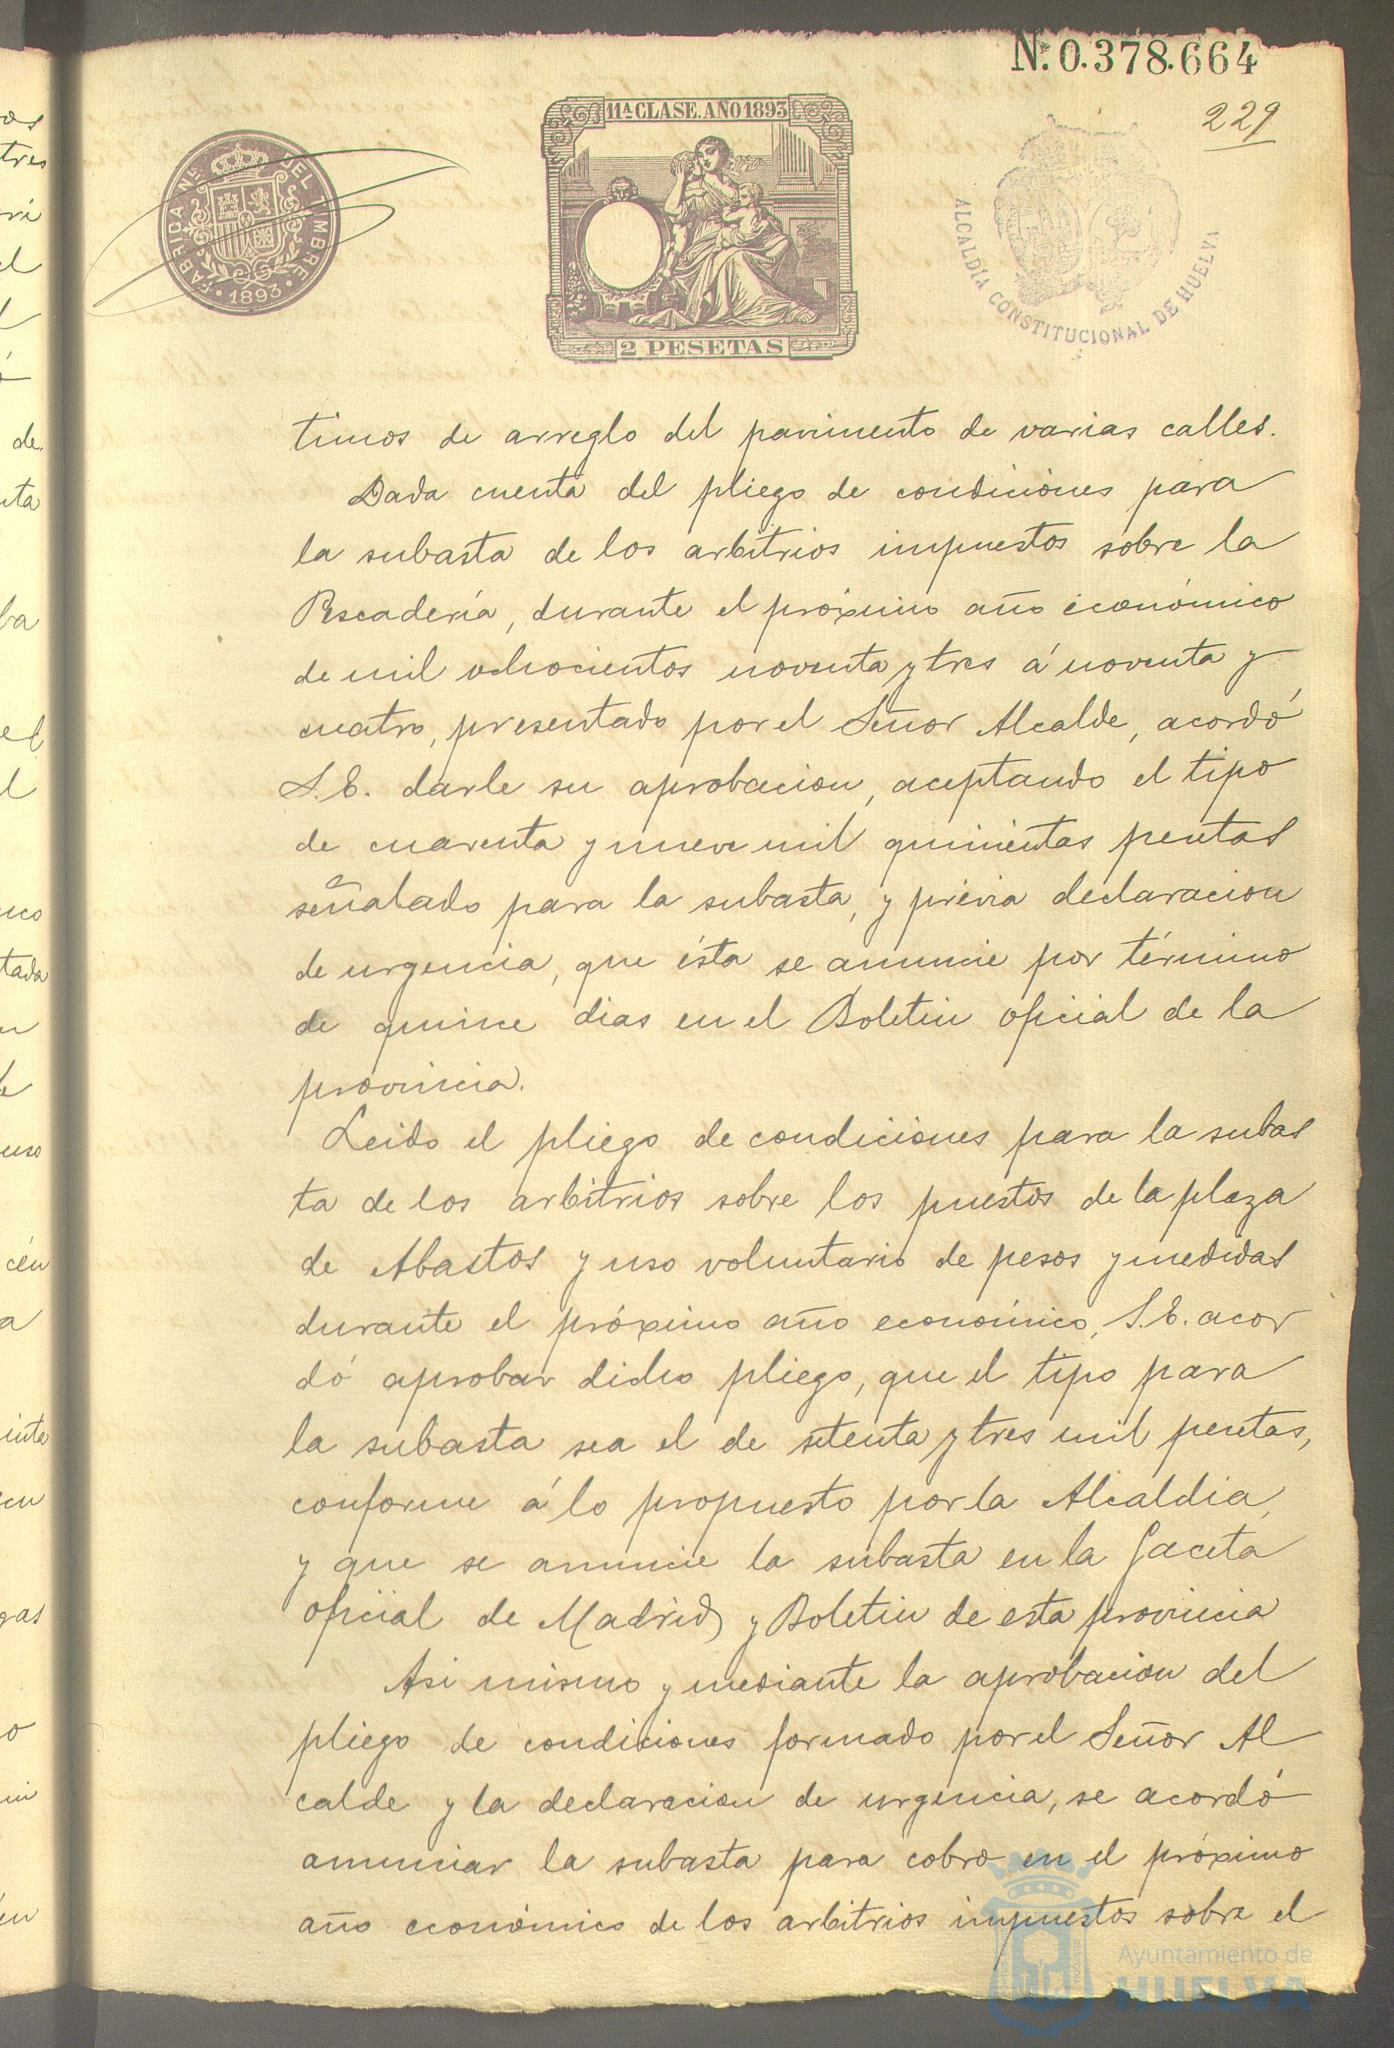 Nº. 0.378.664
229
11ª CLASE. AÑO 1893
FABRICA Nˡ DEL TIMBRE
1893
2 PESETAS
ALCALDÍA CONSTITUCIONAL DE HUELVA
timos de arreglo del pavimento de varias calles.
Dada cuenta del pliego de condiciones para
la subasta de los arbitrios impuestos sobre la
Pescadería, durante el próximo año económico
de mil ochocientos noventa y tres á noventa y
cuatro, presentado por el Señor Alcalde, acordó
S.E. darle su aprobacion, aceptando el tipo
de cuarenta y nueve mil quinientas pesetas
señalado para la subasta, y prévia declaracion
de urgencia, que ésta se anuncie por término
de quince dias en el Boletin oficial de la
provincia.
Leido el pliego de condiciones para la subas
ta de los arbitrios sobre los puestos de la plaza
de Abastos y uso voluntario de pesos y medidas
durante el próximo año económico, S.E. acor
dó aprobar dicho pliego, que el tipo para
la subasta sea el de setenta y tres mil pesetas,
conforme á lo propuesto por la Alcaldia,
y que se anuncie la subasta en la Gaceta
oficial de Madrid y Boletin de esta provincia
Asi mismo y mediante la aprobacion del
pliego de condiciones formado por el Señor Al
calde y la declaracion de urgencia, se acordó
anunciar la subasta para cobro en el próximo
año económico de los arbitrios impuestos sobre el
Ayuntamiento de
HUELVA